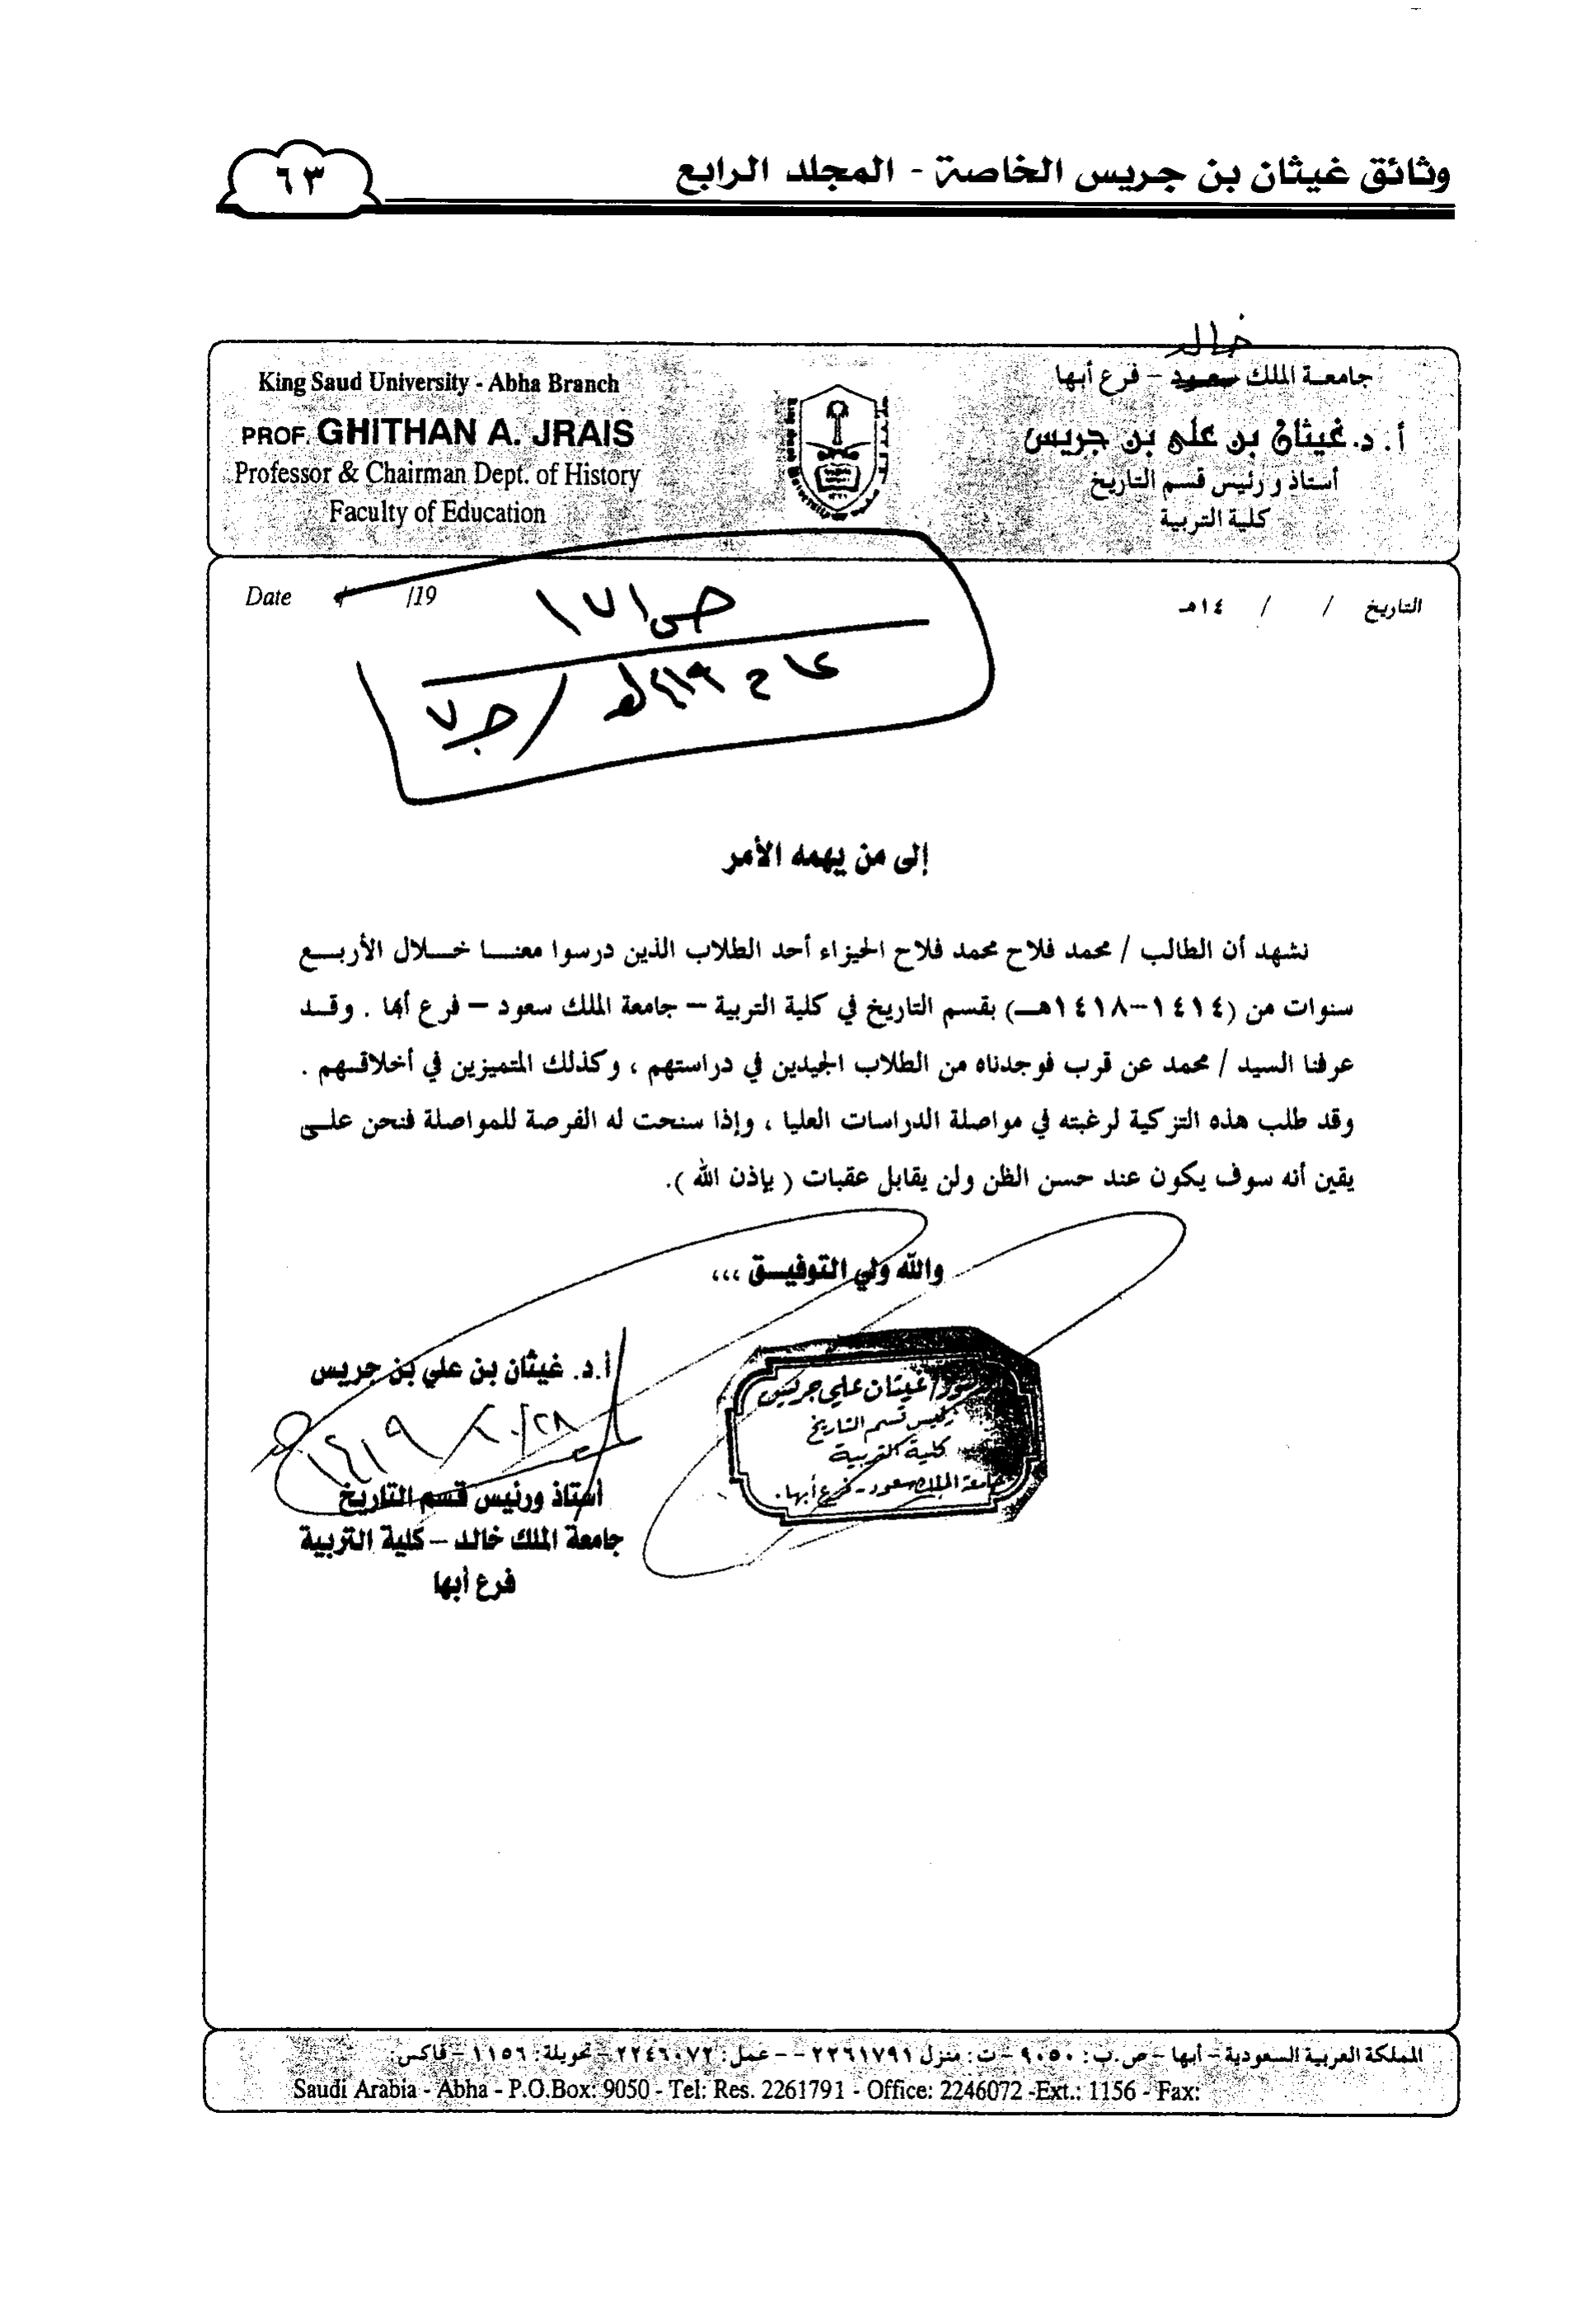 وثائق غيثان بن جريس الخاصة - المجلد الرابع
٦٣
خالد
جامعة الملك سعود - فرع أبها
أ. د. غيثان بن علي بن جريس
أستاذ ورئيس قسم التاريخ
كلية التربية
King Saud University - Abha Branch
PROF. GHITHAN A. JRAIS
Professor & Chairman Dept. of History
Faculty of Education
التاريخ / / ١٤هـ
Date / /19
ص١٧١
١٤١٩هـ / جـ٧
إلى من يهمه الأمر
نشهد أن الطالب / محمد فلاح محمد فلاح الحيزاء أحد الطلاب الذين درسوا معنا خلال الأربع
سنوات من (١٤١٤-١٤١٨هـ) بقسم التاريخ في كلية التربية – جامعة الملك سعود – فرع أبها . وقد
عرفنا السيد / محمد عن قرب فوجدناه من الطلاب الجيدين في دراستهم ، وكذلك المتميزين في أخلاقهم .
وقد طلب هذه التزكية لرغبته في مواصلة الدراسات العليا ، وإذا سنحت له الفرصة للمواصلة فنحن على
يقين أنه سوف يكون عند حسن الظن ولن يقابل عقبات ( بإذن الله ).
والله ولي التوفيق ،،،
أ.د. غيثان بن علي بن جريس
أستاذ ورئيس قسم التاريخ
جامعة الملك خالد – كلية التربية
فرع أبها
غيثان علي جريس
رئيس قسم التاريخ
كلية التربية
جامعة الملك سعود - فرع أبها.
المملكة العربية السعودية - أبها - ص.ب: ٩٠٥٠ - ت: منزل ٢٢٦١٧٩١ - - عمل: ٢٢٤٦٠٧٢ - تحويلة: ١١٥٦ - فاكس:
Saudi Arabia - Abha - P.O.Box: 9050 - Tel: Res. 2261791 - Office: 2246072 -Ext.: 1156 - Fax: